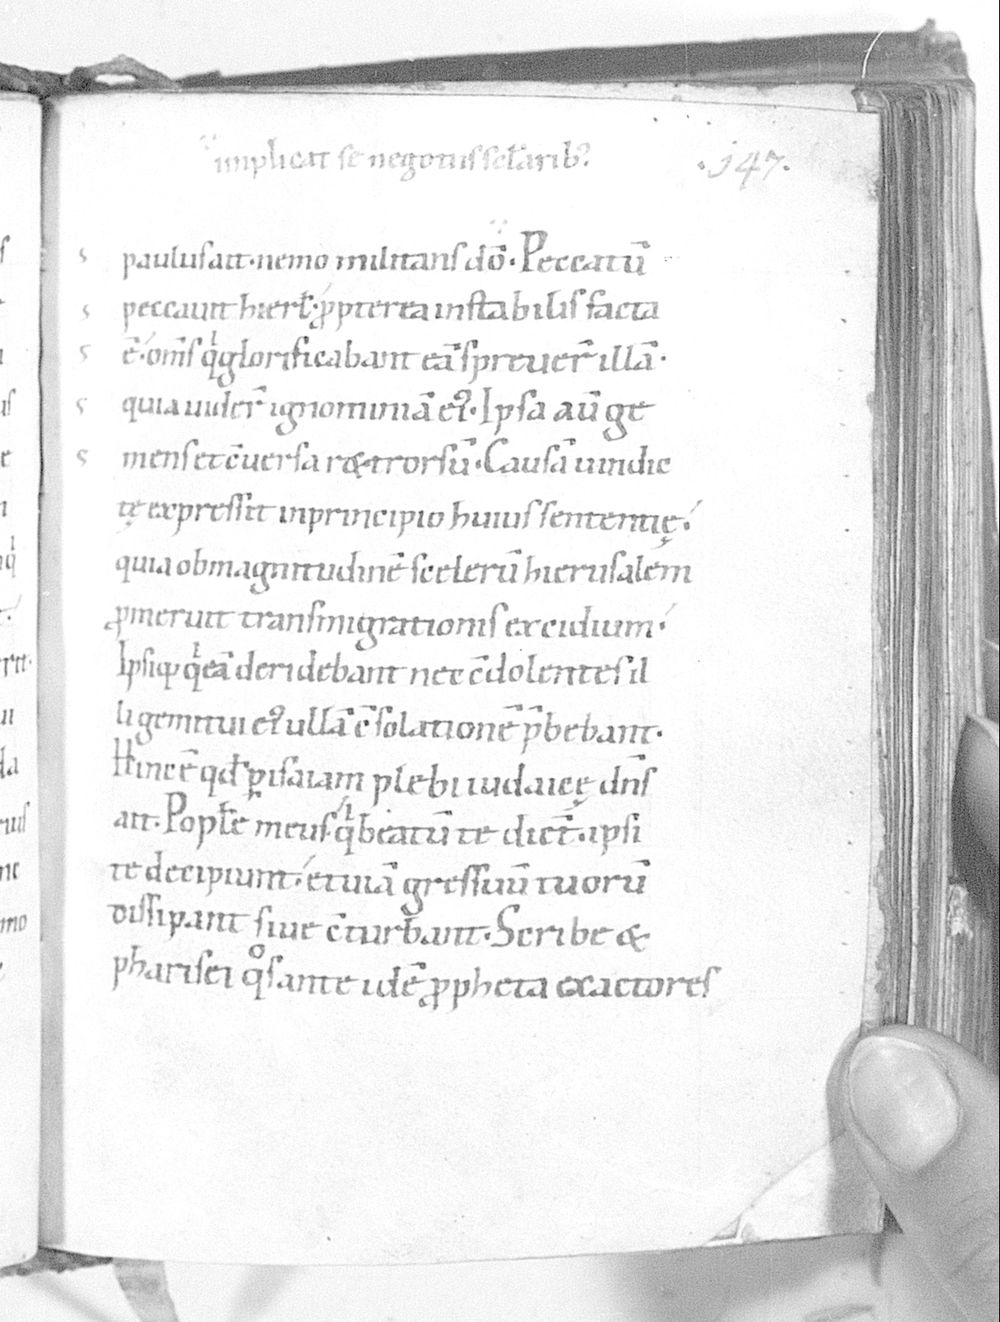 implicat se negotiis sc̄larib; .147.
s pauluſ ait· nemo militanſ dō· Peccatū
s peccauit hierl̄· ꝓpterea inſtabiliſ facta
s ē· om̄ſ qͥ glorificabant eā ſpreuer̄ illā·
s quia uider̄ ignominiā eꝰ· Ipſa aū ge
s menſ et c̄uerſa r&rorſū· Cauſā uindic
tę expreſſit inprincipio huiuſ ſententię·
quia ob magnitudinē ſcelerū hieruſalem
ꝓmeruit tranſmigrationiſ excidium·
Ipſiq; qͥ eā deridebant nec c̄dolenteſ il
li gemitui eꝰ ullā c̄ſolationē p̄bebant·
Hinc ē qd̄ ꝑ iſaiam plebi iudaicę dn̄ſ
ait· Popl̄e meuſ qͥ beatū te dic̄t· ipſi
te decipiunt· et uiā greſſuū tuorū
diſſipant ſiue c̄turbant· Scribe &
phariſei qͦſ ante idē ꝓpheta exactoreſ